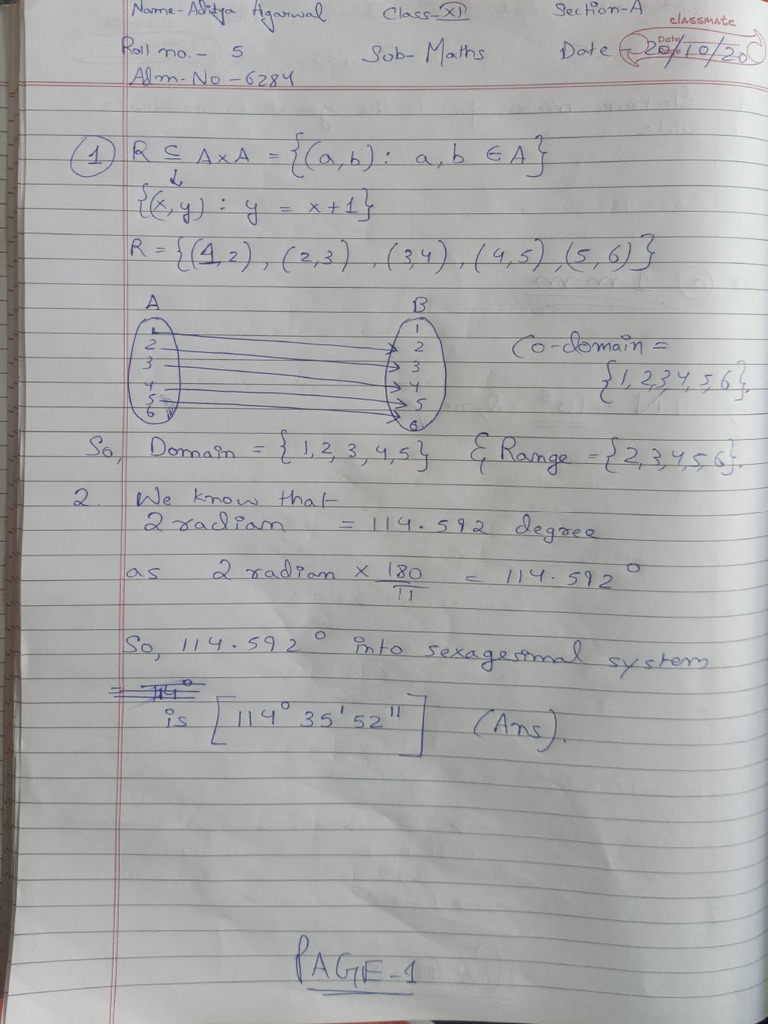 Name-Aditya Agarwal Class-XI Section-A
classmate
Roll no.- 5 Sub- Maths Date - 20/10/20
Date
Page
Adm. No - 6284
1 R ⊆ A×A = {(a,b) : a,b ∈ A}
↓
{(x,y) : y = x+1}
R = {(1,2), (2,3), (3,4), (4,5), (5,6)}
A B
1 1
2 2
3 3
4 4
5 5
6 6
Co-domain =
{1,2,3,4,5,6}.
So, Domain = {1,2,3,4,5} & Range = {2,3,4,5,6}.
2. We know that
2 radian = 114.592 degree
as 2 radian × 180/π = 114.592°
So, 114.592° into sexagesimal system
= 114°
is [114° 35' 52"] (Ans).
PAGE-1